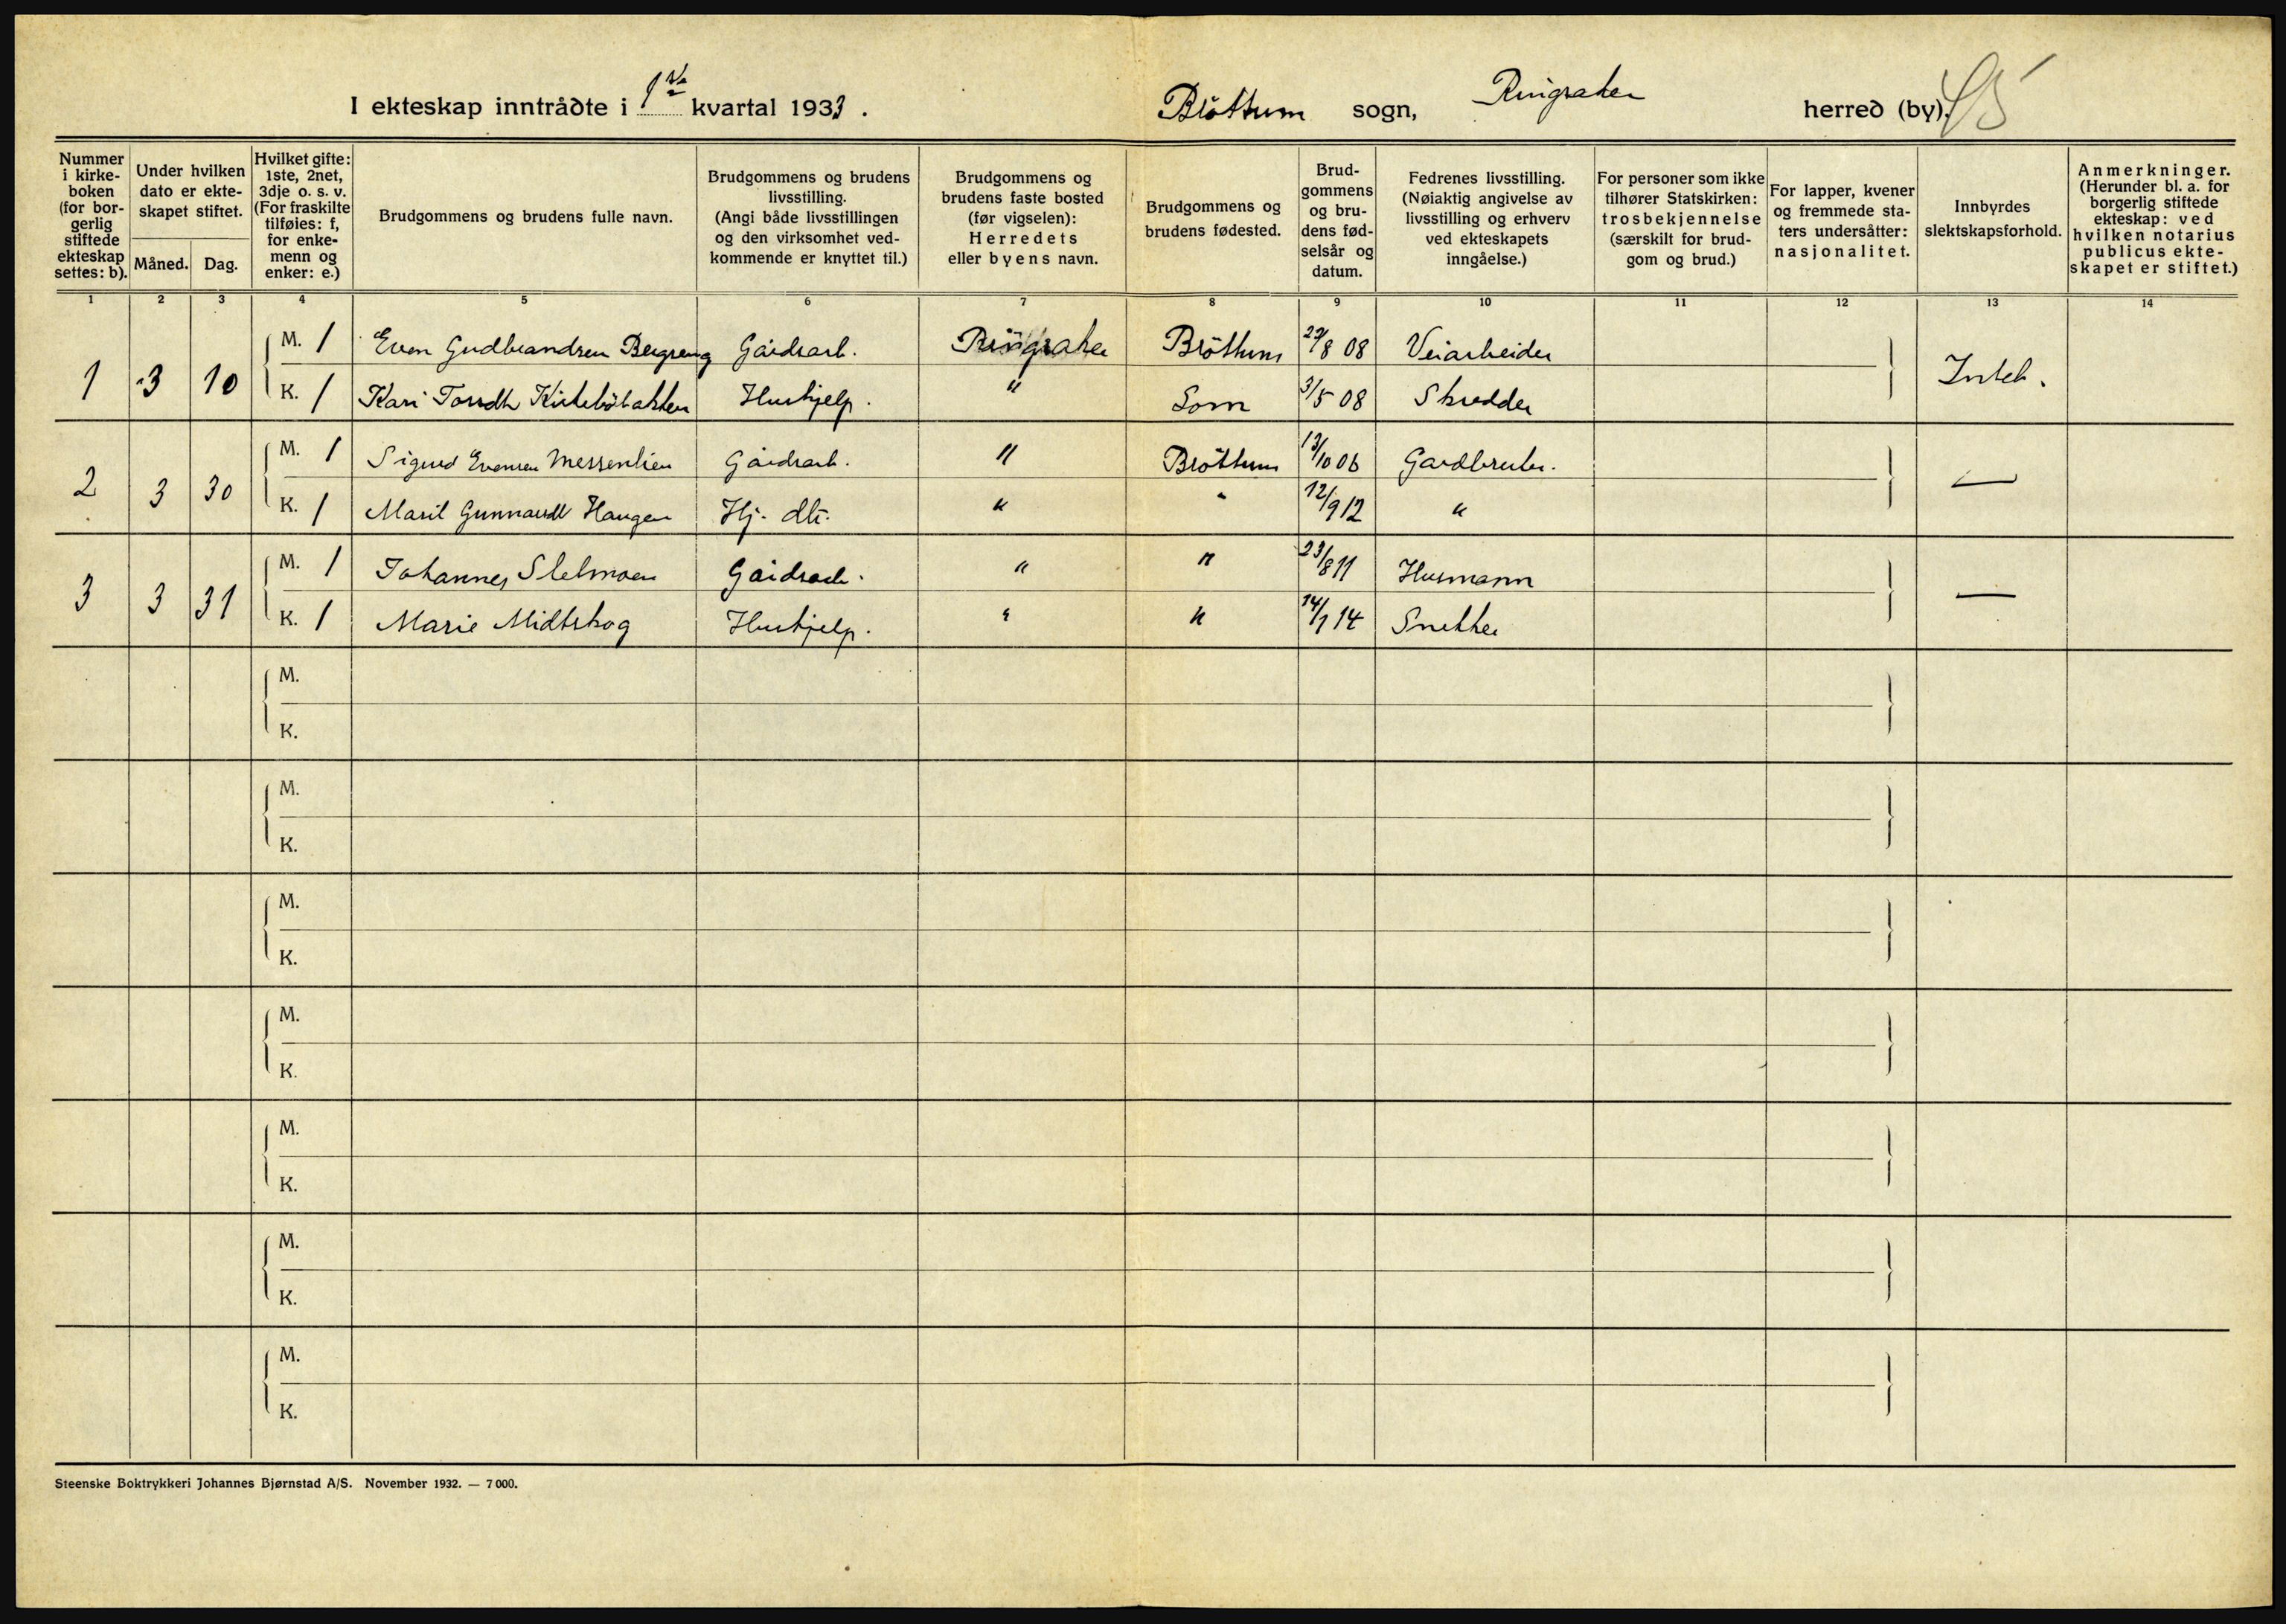 I ekteskap inntrådte i 1ste kvartal 1933. Brøttum sogn, Ringsaker herred (by).
Nummer i kirke-boken (for bor-gerlig stiftede ekteskap settes: b).
Under hvilken dato er ekte-skapet stiftet.
Måned.
Dag.
Hvilket gifte: 1ste, 2net, 3dje o. s. v. (For fraskilte tilføies: f, for enke-menn og enker: e.)
Brudgommens og brudens fulle navn.
Brudgommens og brudens livsstilling. (Angi både livsstillingen og den virksomhet ved-kommende er knyttet til.)
Brudgommens og brudens faste bosted (før vigselen): Herredets eller byens navn.
Brudgommens og brudens fødested.
Brud-gommens og bru-dens fød-selsår og datum.
Fedrenes livsstilling. (Nøiaktig angivelse av livsstilling og erhverv ved ekteskapets inngåelse.)
For personer som ikke tilhører Statskirken: trosbekjennelse (særskilt for brud-gom og brud.)
For lapper, kvener og fremmede sta-ters undersåtter: nasjonalitet.
Innbyrdes slektskapsforhold.
Anmerkninger. (Herunder bl. a. for borgerlig stiftede ekteskap: ved hvilken notarius publicus ekte-skapet er stiftet.)
1 2 3 4 5 6 7 8 9 10 11 12 13 14
1 3 10 M. 1 Even Gudbrandsen Bergseng Gårdsarb. Ringsaker Brøttum 29/8 08 Veiarbeider Intet.
K. 1 Kari Torsdtr Kirkebøbakken Hushjelp. " 3/5 08 Skredder
2 3 30 M. 1 Sigurd Evensen Messenlien Gårdsarb. " Brøttum 13/10 06 Gardbruker. —
K. 1 Marit Gunnarsdtr Haugen Hj. dtr. " " 12/9 12 "
3 3 31 M. 1 Johannes Gårdsarb. " " 23/8 11 Husmann —
K. 1 Marie Midtskog Hushjelp. " " 14/1 14 Snekker
M.
K.
M.
K.
M.
K.
M.
K.
M.
K.
M.
K.
M.
K.
Steenske Boktrykkeri Johannes Bjørnstad A/S. November 1932. — 7 000.